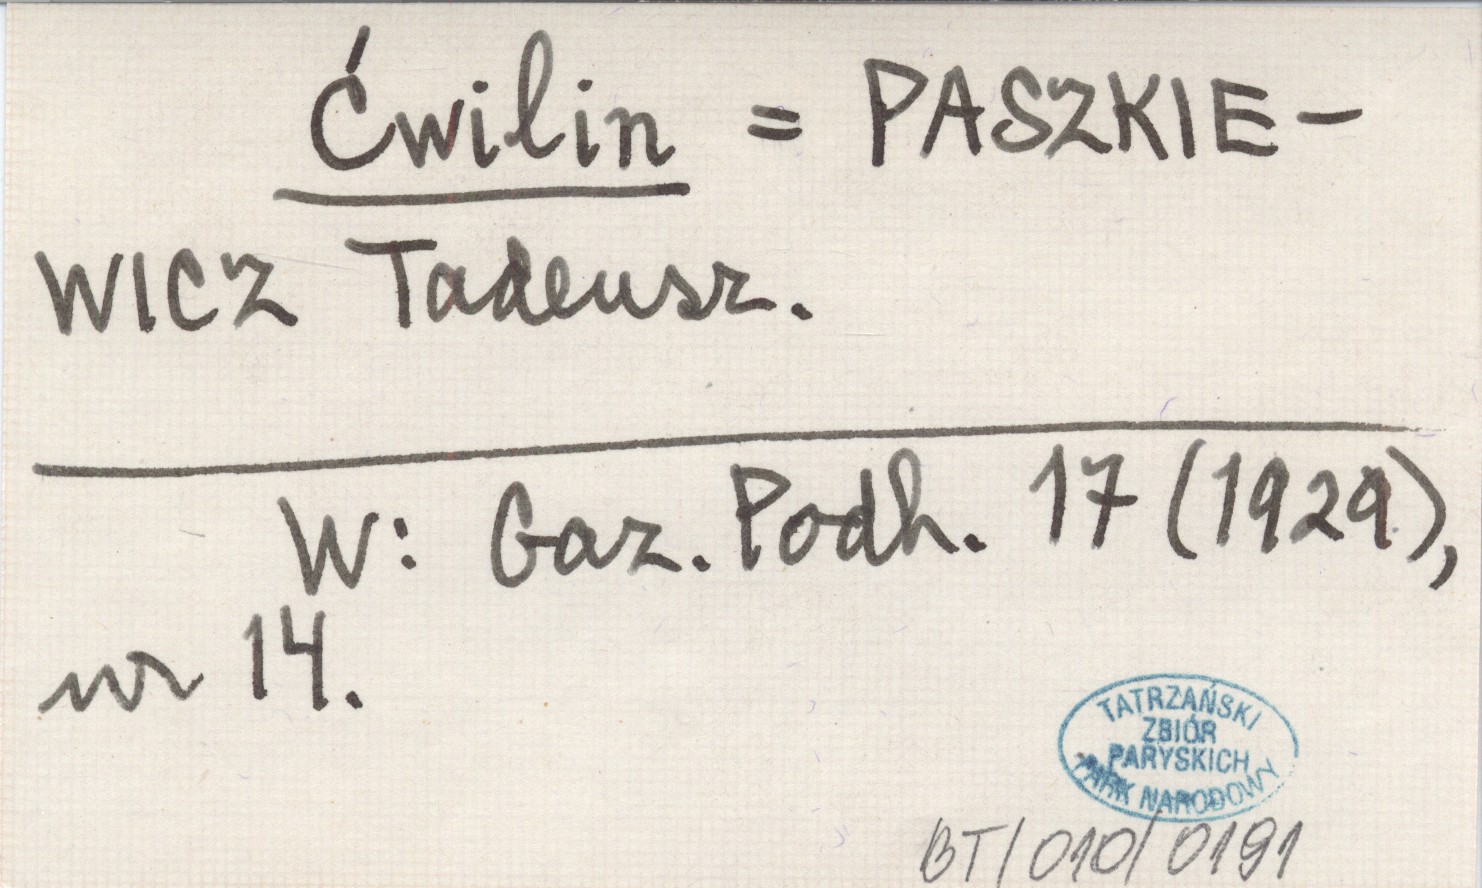 Ćwilin = PASZKIE-
WICZ Tadeusz.
W: Gaz. Podh. 17 (1929),
nr 14.
TATRZAŃSKI
ZBIÓR
PARYSKICH
PARK NARODOWY
BT/010/0191